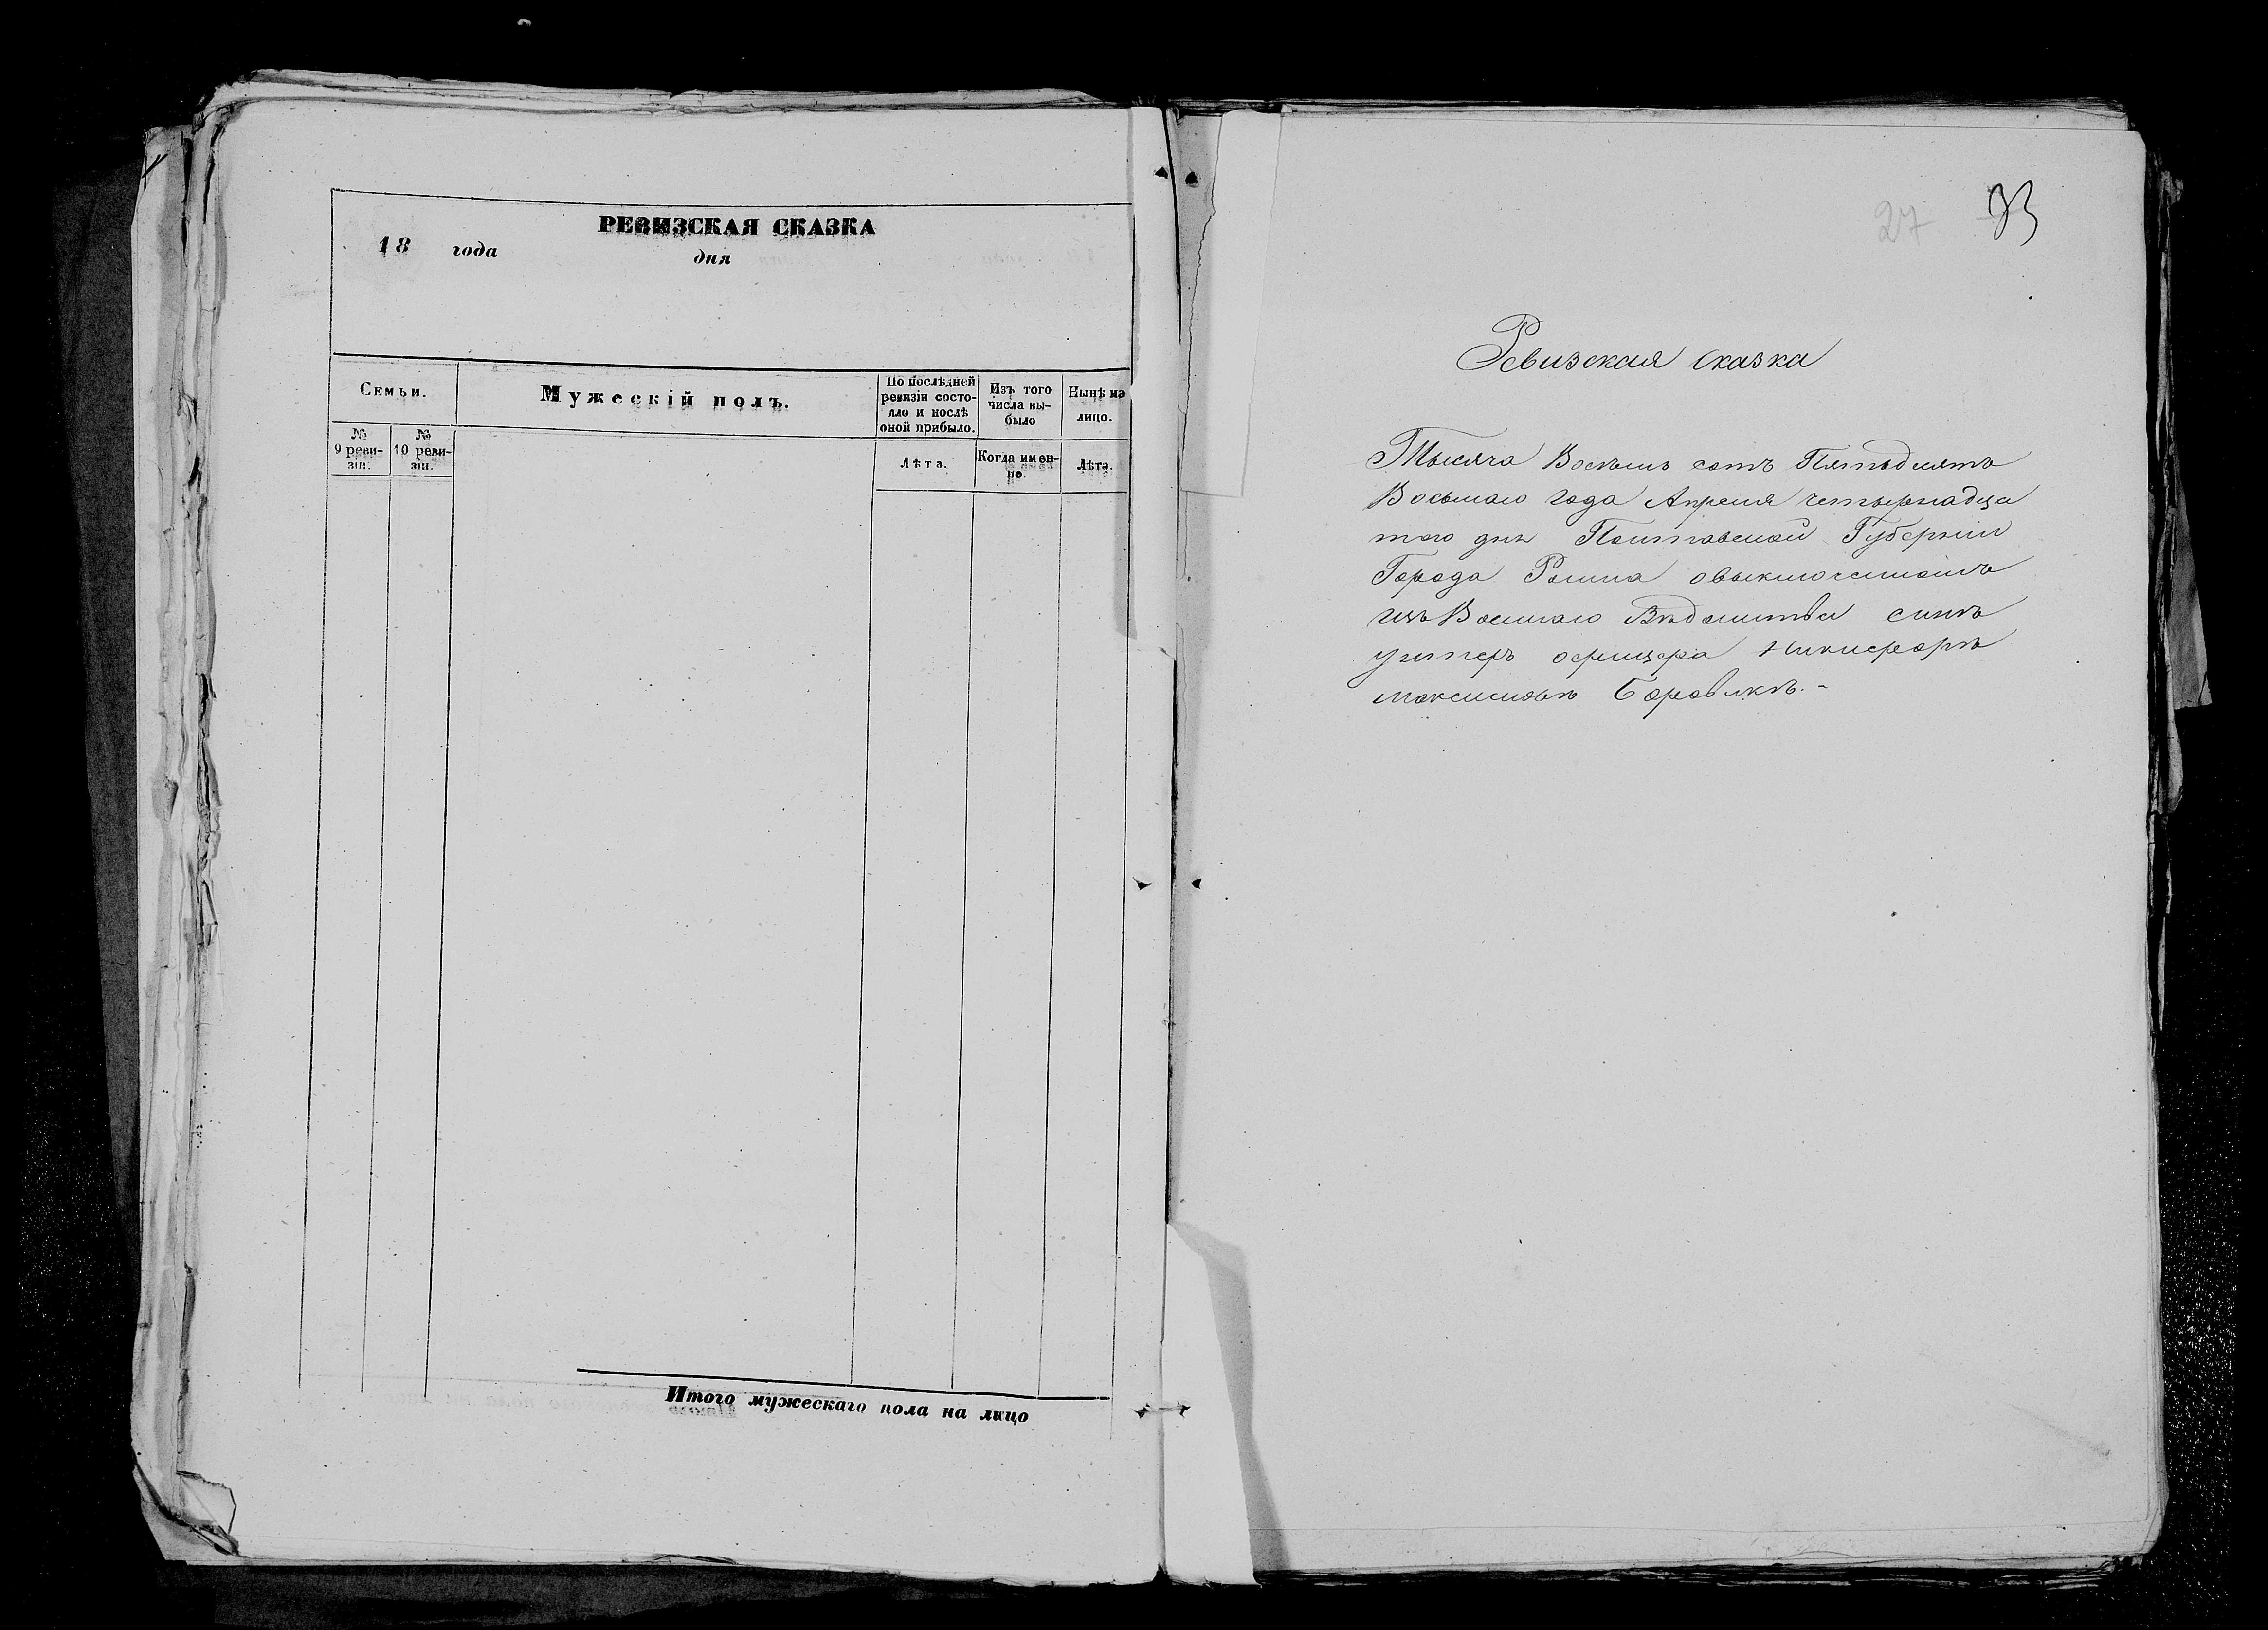 РЕВИЗСКАЯ СКАЗКА
18 года дня
Семьи.
Мужескій полъ.
По послѣдней ревизіи состо-
яло и послѣ
оной прибыло.
Изъ того
числа вы-
было
Нынѣ на
лицо.
№
9 реви-
зіи.
№
10 реви-
зіи.
Лѣта.
Когда имен-
но.
Лѣта.
Итого мужескаго пола на лицо
27
Ревизская сказка
Тысяча Восемь сотъ Пятьдсятъ
Восьмаго года Апреля четырнадца
таго дня Полтавской Губерніи
Города Ромна овыключенномъ
изъ Военнаго Вѣдомства сынѣ
унтеръ офицера Никифорѣ
Максимовѣ Боровикѣ.-